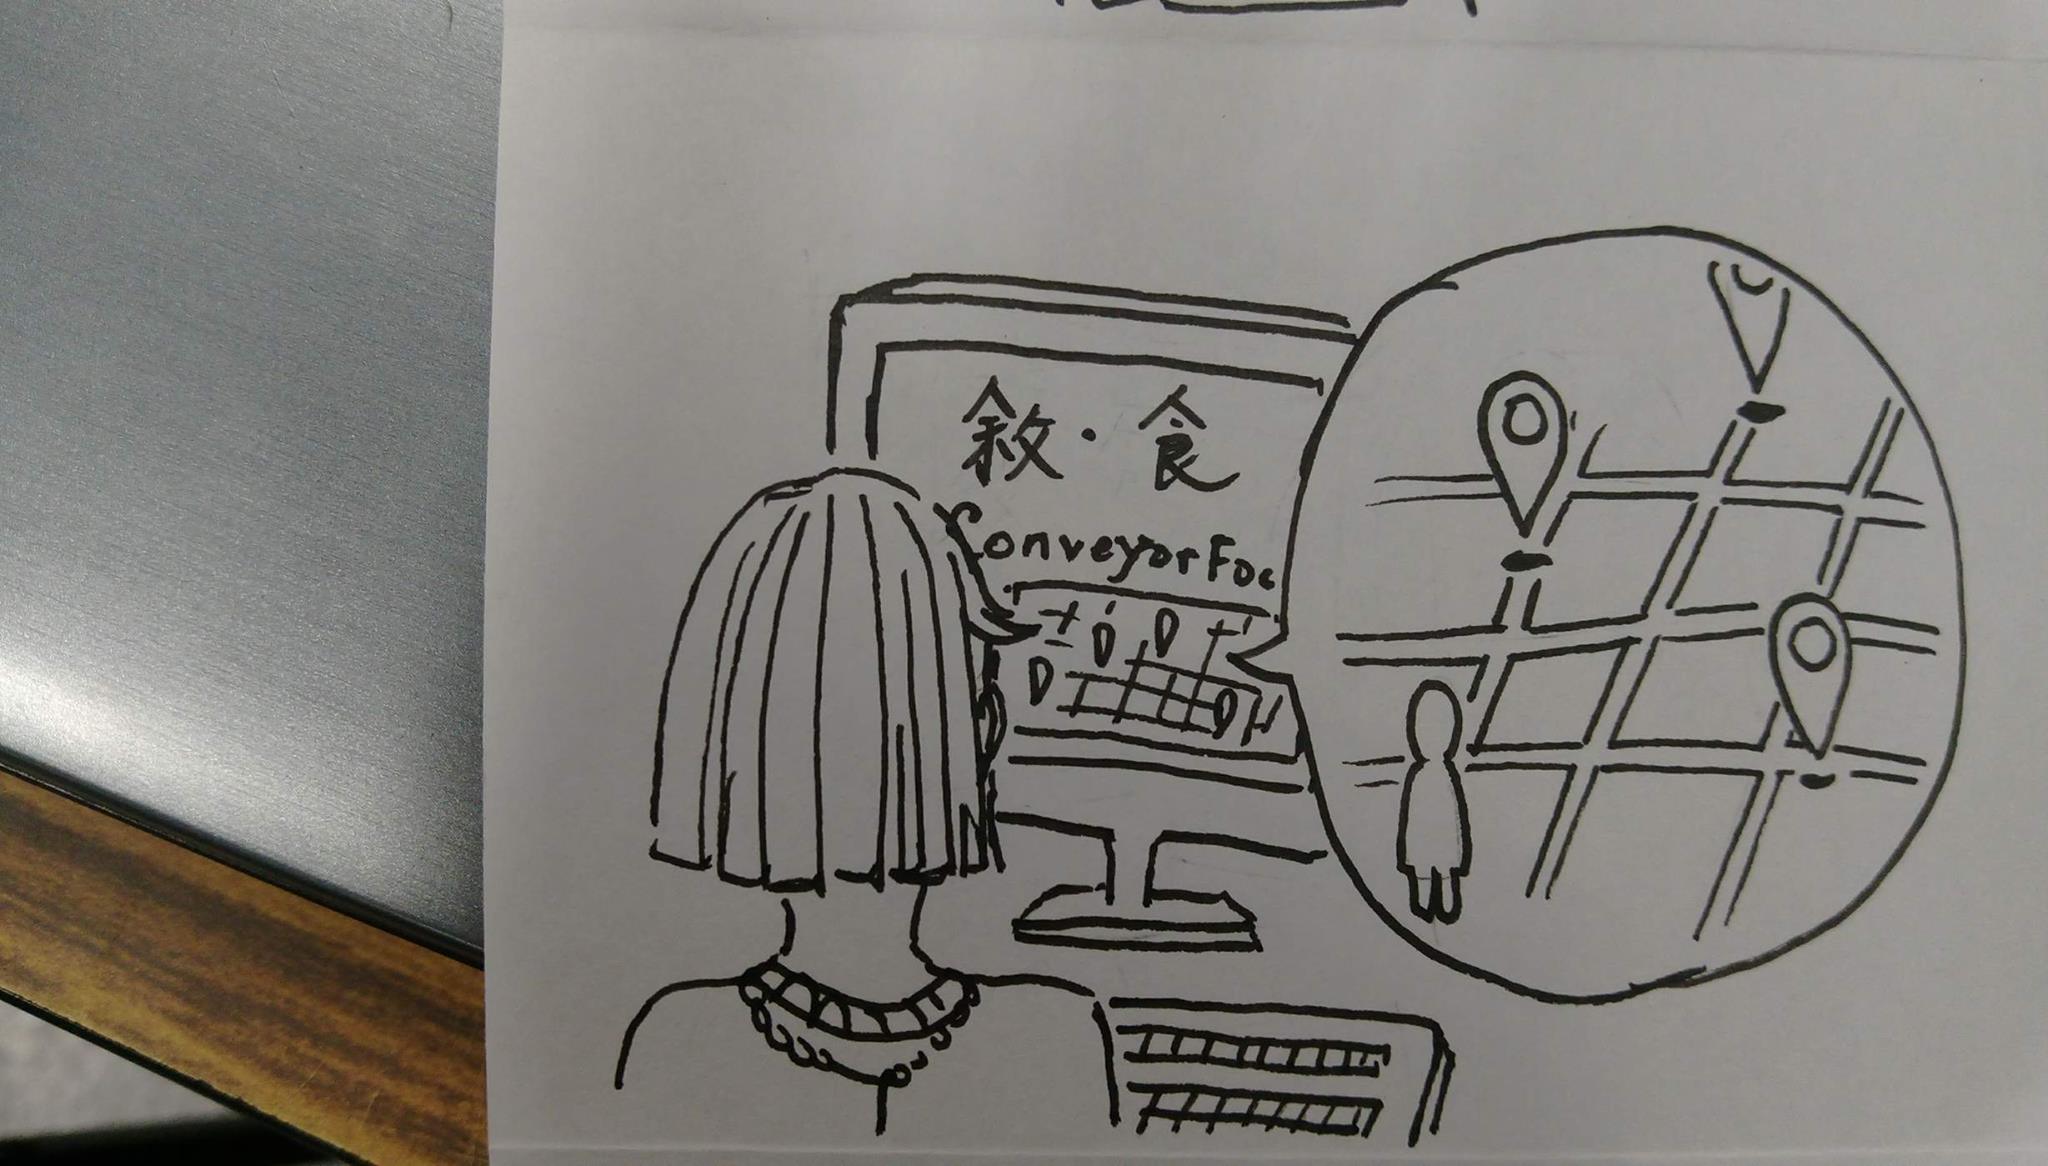 敘·食
Conveyor Foo